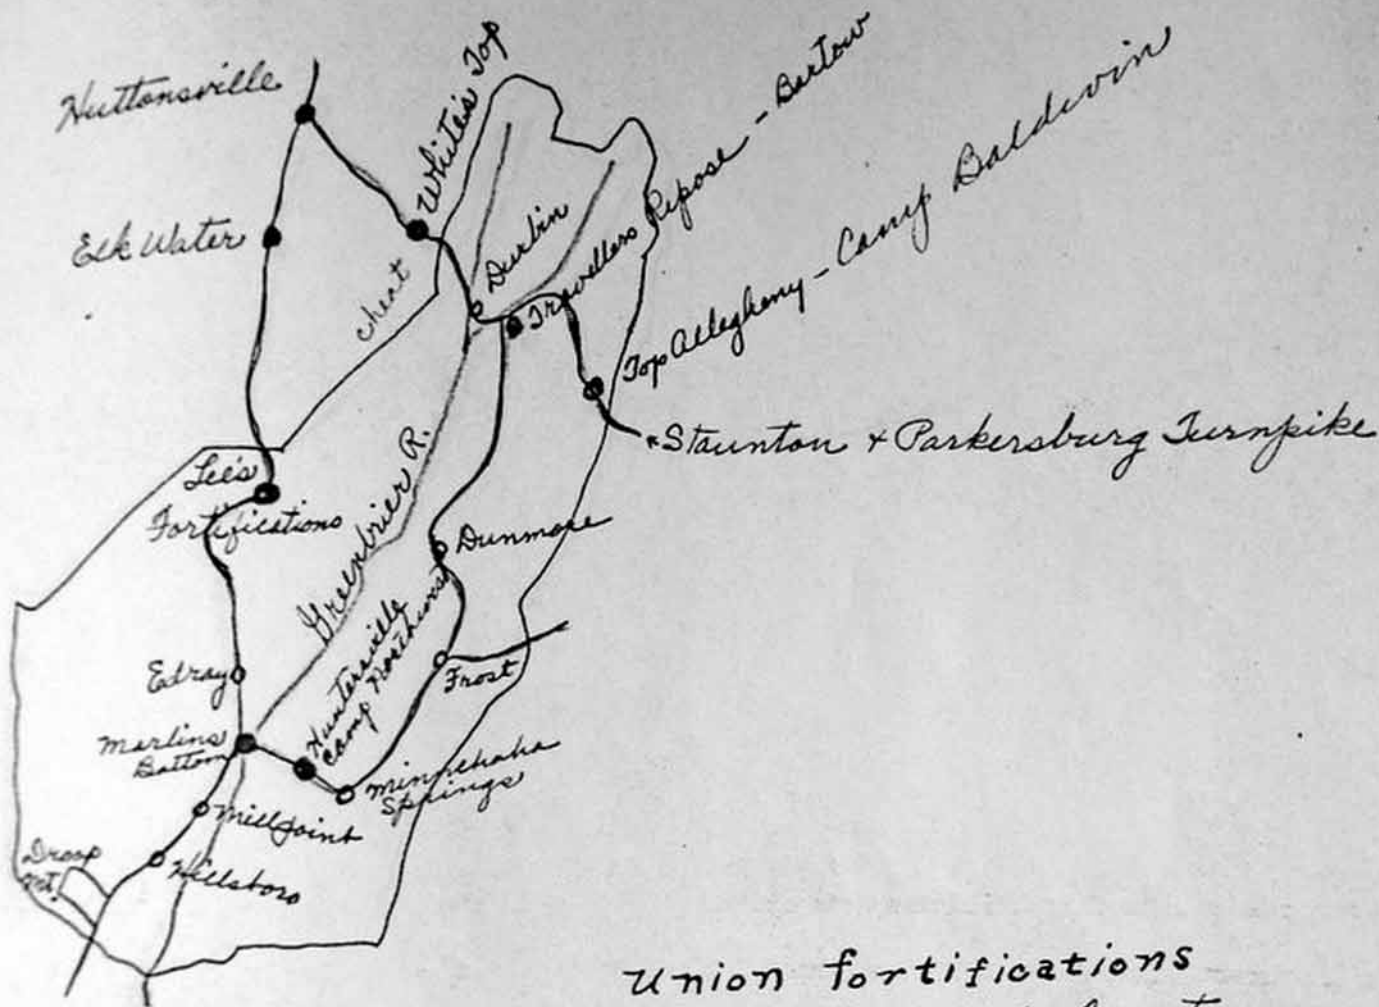 Huttonsville
White's Top
Elk Water
Cheat
Durbin
Travellers Repose - Bartow
Top Allegheny - Camp Baldwin
Staunton + Parkersburg Turnpike
Lee's
Fortifications
Greenbrier R.
Dunmore
Huntersville
Camp
Frost
Edray
Marlins
Bottom
Minnehaha
Springs
Mill Point
Hillsboro
Droop
Mt.
Union fortifications